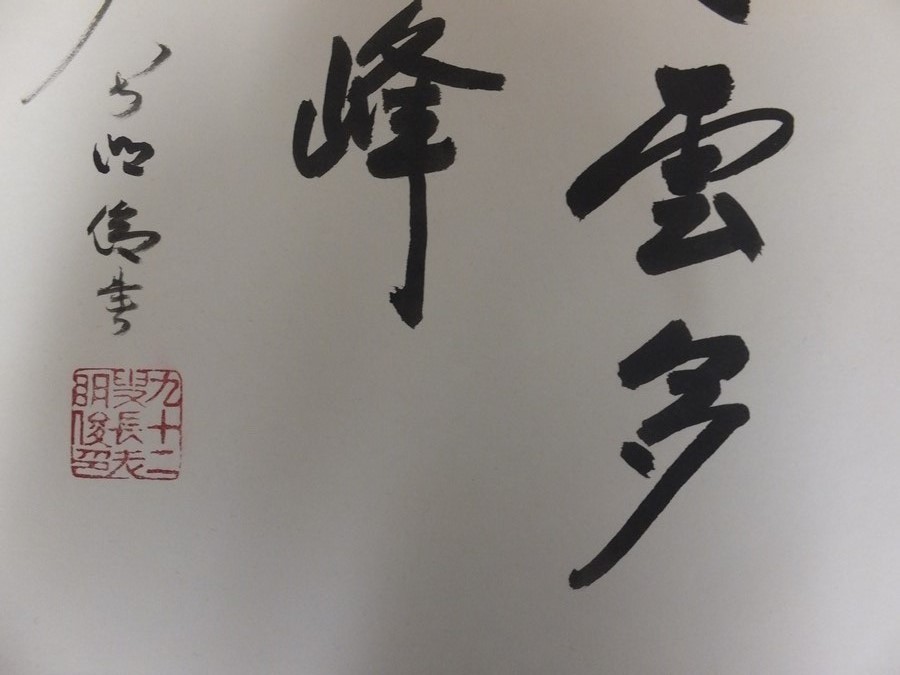 雲多
峰
明俊書
九十二
叟長老
明俊印